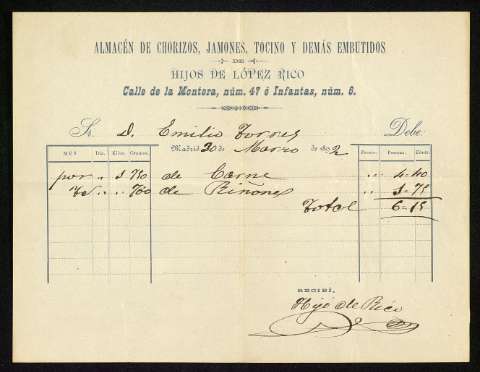 ALMACÉN DE CHORIZOS, JAMONES, TOCINO Y DEMÁS EMBUTIDOS
DE
HIJOS DE LÓPEZ RICO
Calle de la Montera, núm. 47 é Infantas, núm. 6.
Sr. D. Emilio Torres Debe:
MES Día. Kilos Gramos. Madrid 30 de Marzo de 2 Precio. Pesetas. Cénts.
por 1 750 de Carne 4=40
700 de Riñones 1=75
Total 6=15
RECIBÍ,
Hijo de Rico